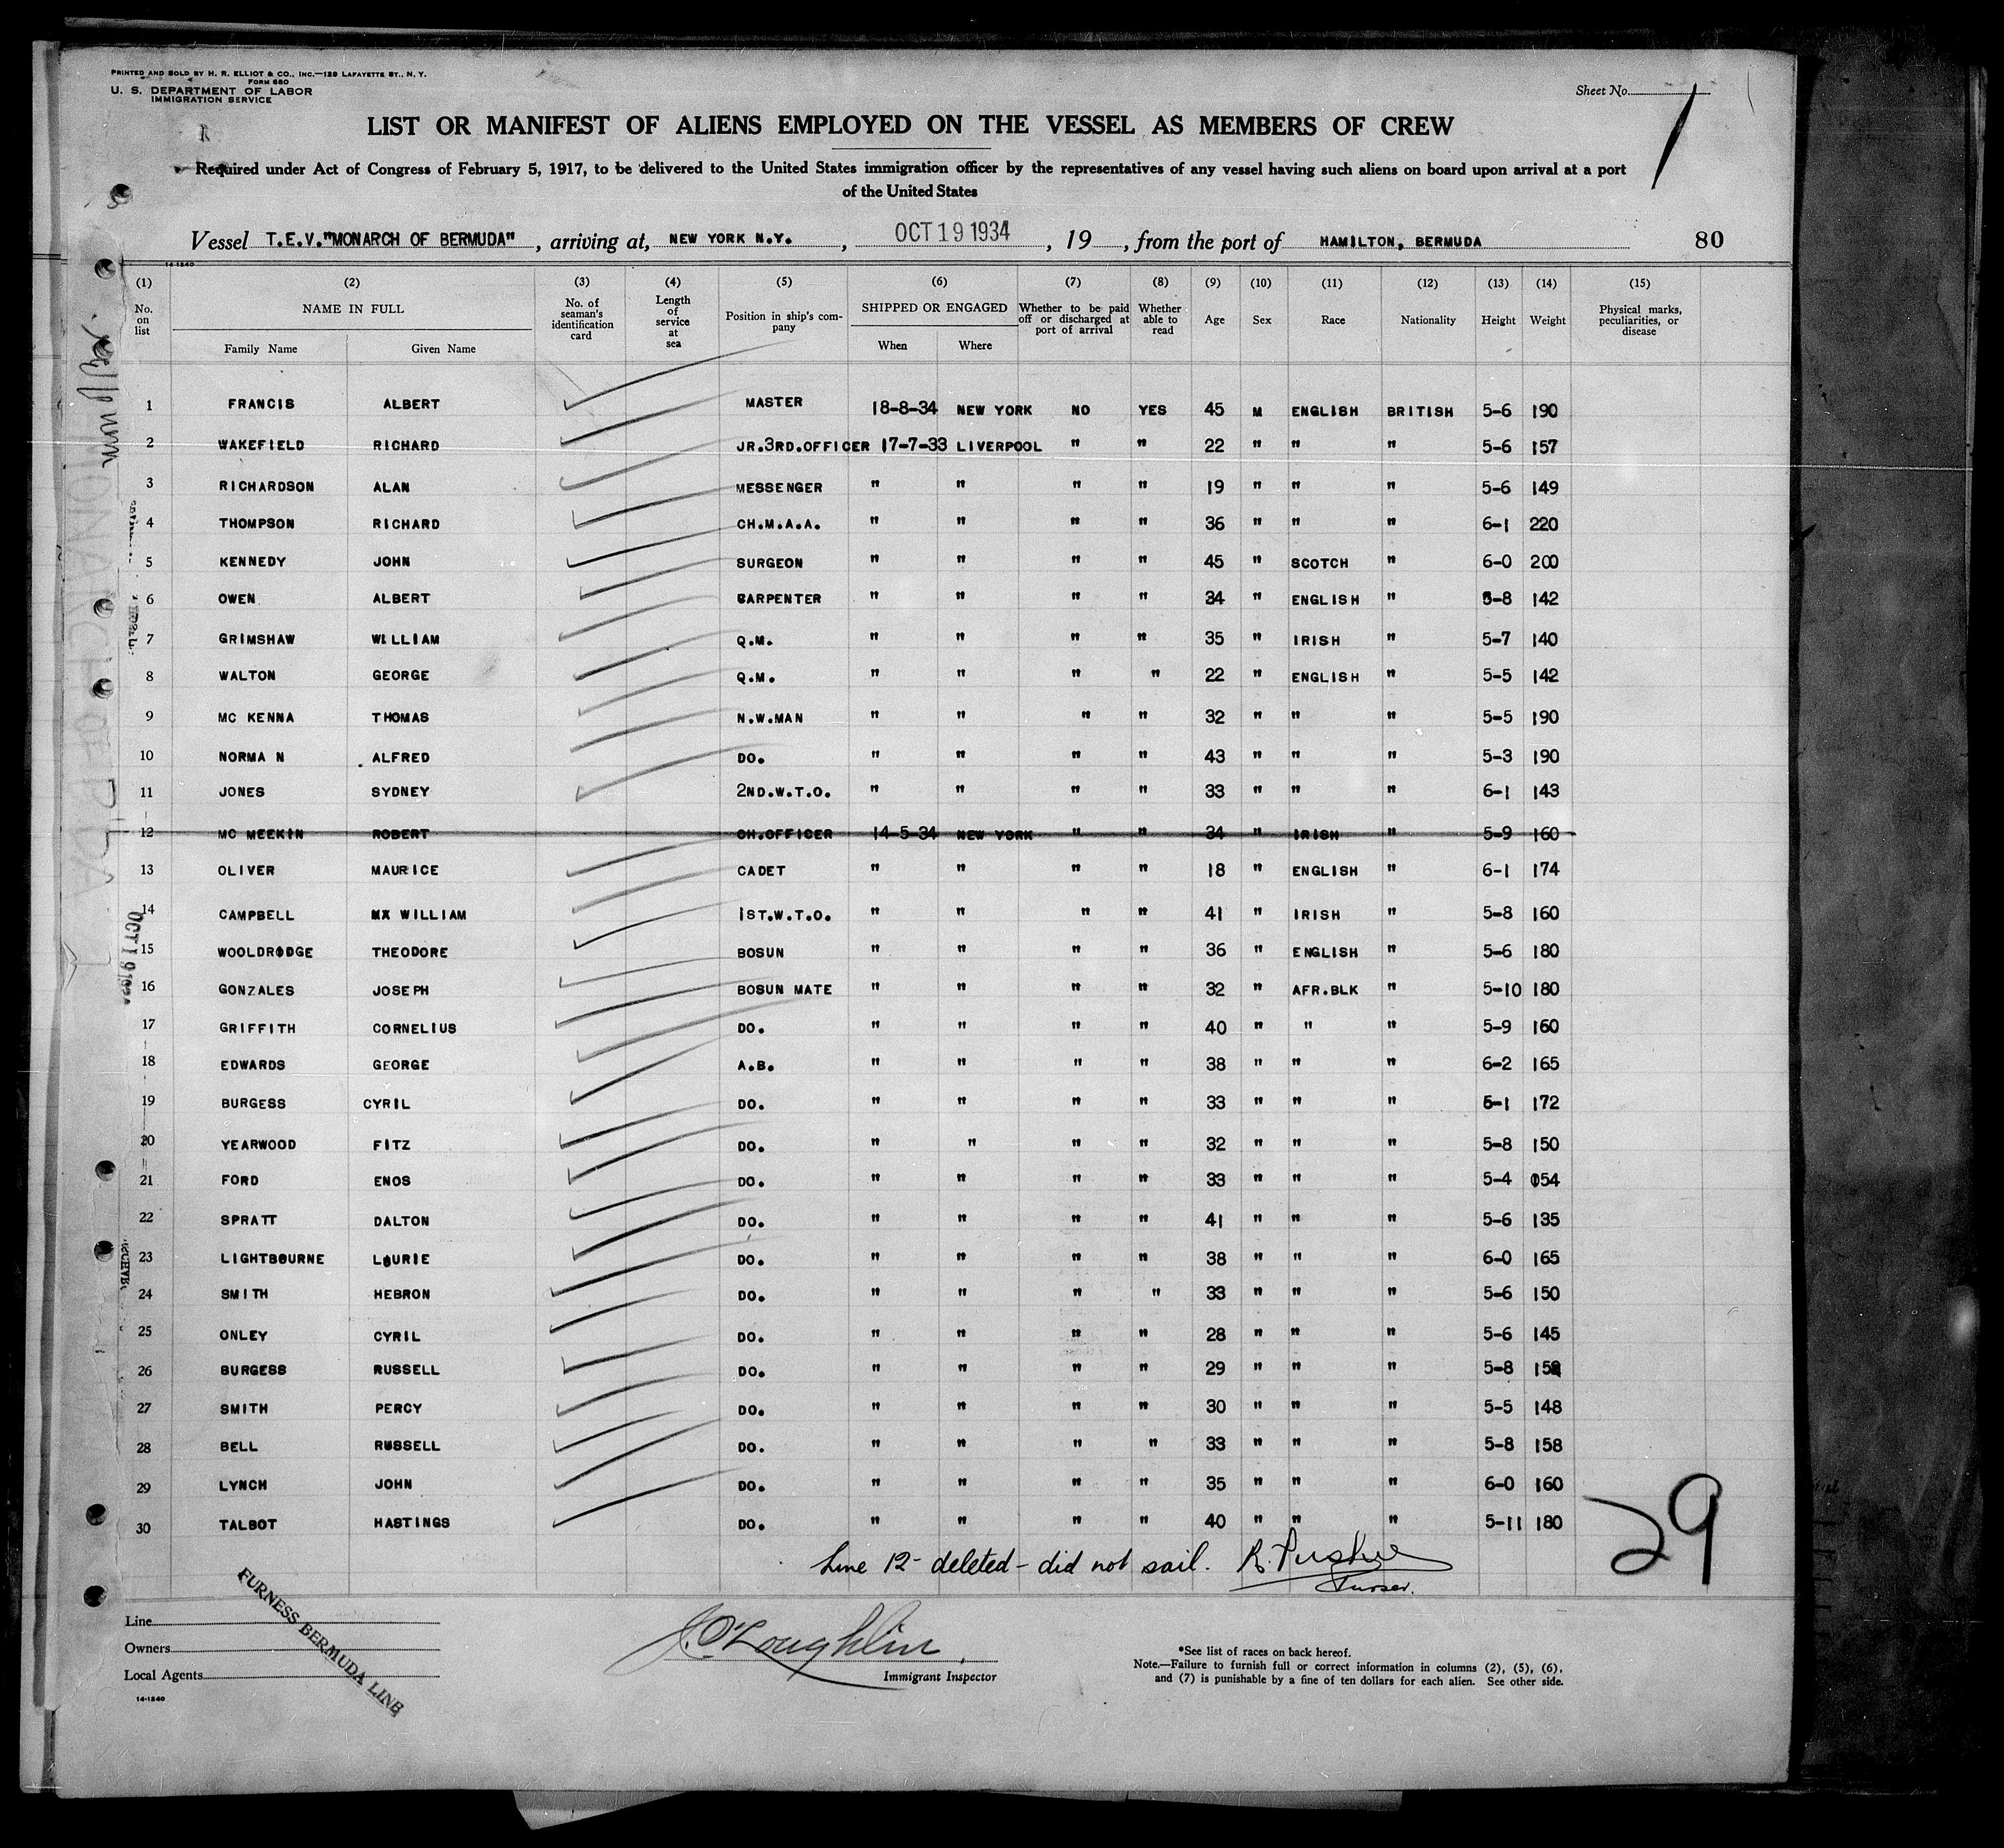 PRINTED AND SOLD BY H. R. ELLIOT & CO., INC.—129 LAFAYETTE ST., N. Y.
FORM 680
U. S. DEPARTMENT OF LABOR
IMMIGRATION SERVICE
Sheet No. 1
LIST OR MANIFEST OF ALIENS EMPLOYED ON THE VESSEL AS MEMBERS OF CREW
Required under Act of Congress of February 5, 1917, to be delivered to the United States immigration officer by the representatives of any vessel having such aliens on board upon arrival at a port
of the United States
Vessel T.E.V."MONARCH OF BERMUDA", arriving at, NEW YORK N.Y., OCT 19 1934, 19, from the port of HAMILTON, BERMUDA 80
14-1240
(1) No. on list (2) NAME IN FULL Family Name Given Name (3) No. of seaman's identification card (4) Length of service at sea (5) Position in ship's company (6) SHIPPED OR ENGAGED When Where (7) Whether to be paid off or discharged at port of arrival (8) Whether able to read (9) Age (10) Sex (11) Race (12) Nationality (13) Height (14) Weight (15) Physical marks, peculiarities, or disease
1 FRANCIS ALBERT MASTER 18-8-34 NEW YORK NO YES 45 M ENGLISH BRITISH 5-6 190
2 WAKEFIELD RICHARD JR.3RD.OFFICER 17-7-33 LIVERPOOL " " 22 " " " 5-6 157
3 RICHARDSON ALAN MESSENGER " " " " 19 " " " 5-6 149
4 THOMPSON RICHARD CH.M.A.A. " " " " 36 " " " 6-1 220
5 KENNEDY JOHN SURGEON " " " " 45 " SCOTCH " 6-0 200
6 OWEN ALBERT CARPENTER " " " " 34 " ENGLISH " 5-8 142
7 GRIMSHAW WILLIAM Q.M. " " " " 35 " IRISH " 5-7 140
8 WALTON GEORGE Q.M. " " " " 22 " ENGLISH " 5-5 142
9 MC KENNA THOMAS N.W.MAN " " " " 32 " " " 5-5 190
10 NORMA N ALFRED DO. " " " " 43 " " " 5-3 190
11 JONES SYDNEY 2ND.W.T.O. " " " " 33 " " " 6-1 143
12 MC MEEKIN ROBERT CH.OFFICER 14-5-34 NEW YORK " " 34 " IRISH " 5-9 160
13 OLIVER MAURICE CADET " " " " 18 " ENGLISH " 6-1 174
14 CAMPBELL MX WILLIAM 1ST.W.T.O. " " " " 41 " IRISH " 5-8 160
15 WOOLDRODGE THEODORE BOSUN " " " " 36 " ENGLISH " 5-6 180
16 GONZALES JOSEPH BOSUN MATE " " " " 32 " AFR.BLK " 5-10 180
17 GRIFFITH CORNELIUS DO. " " " " 40 " " " 5-9 160
18 EDWARDS GEORGE A.B. " " " " 38 " " " 6-2 165
19 BURGESS CYRIL DO. " " " " 33 " " " 6-1 172
20 YEARWOOD FITZ DO. " " " " 32 " " " 5-8 150
21 FORD ENOS DO. " " " " 33 " " " 5-4 054
22 SPRATT DALTON DO. " " " " 41 " " " 5-6 135
23 LIGHTBOURNE LOURIE DO. " " " " 38 " " " 6-0 165
24 SMITH HEBRON DO. " " " " 33 " " " 5-6 150
25 ONLEY CYRIL DO. " " " " 28 " " " 5-6 145
26 BURGESS RUSSELL DO. " " " " 29 " " " 5-8
27 SMITH PERCY DO. " " " " 30 " " " 5-5 148
28 BELL RUSSELL DO. " " " " 33 " " " 5-8 158
29 LYNCH JOHN DO. " " " " 35 " " " 6-0 160
30 TALBOT HASTINGS DO. " " " " 40 " " " 5-11 180
29
Line 12 - deleted - did not sail.
Purser.
OCT 19 1934
MONARCH OF BERMUDA
Line
Owners
Local Agents
FURNESS BERMUDA LINE
14-1240
J. O'Loughlin
Immigrant Inspector
*See list of races on back hereof.
Note.—Failure to furnish full or correct information in columns (2), (5), (6),
and (7) is punishable by a fine of ten dollars for each alien. See other side.